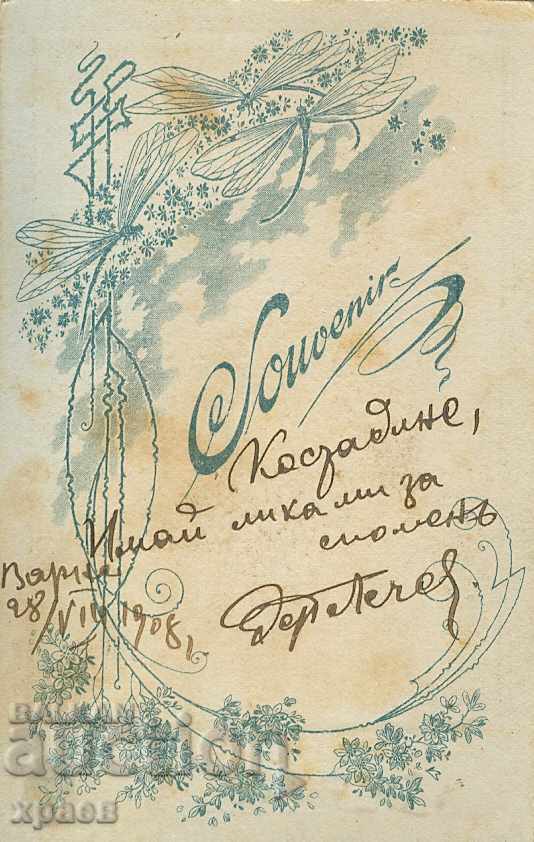 Souvenir
Костадине,
Имай лика ми за
споменъ
Варна
28/VII 1908,
BALKAN
auction
храов